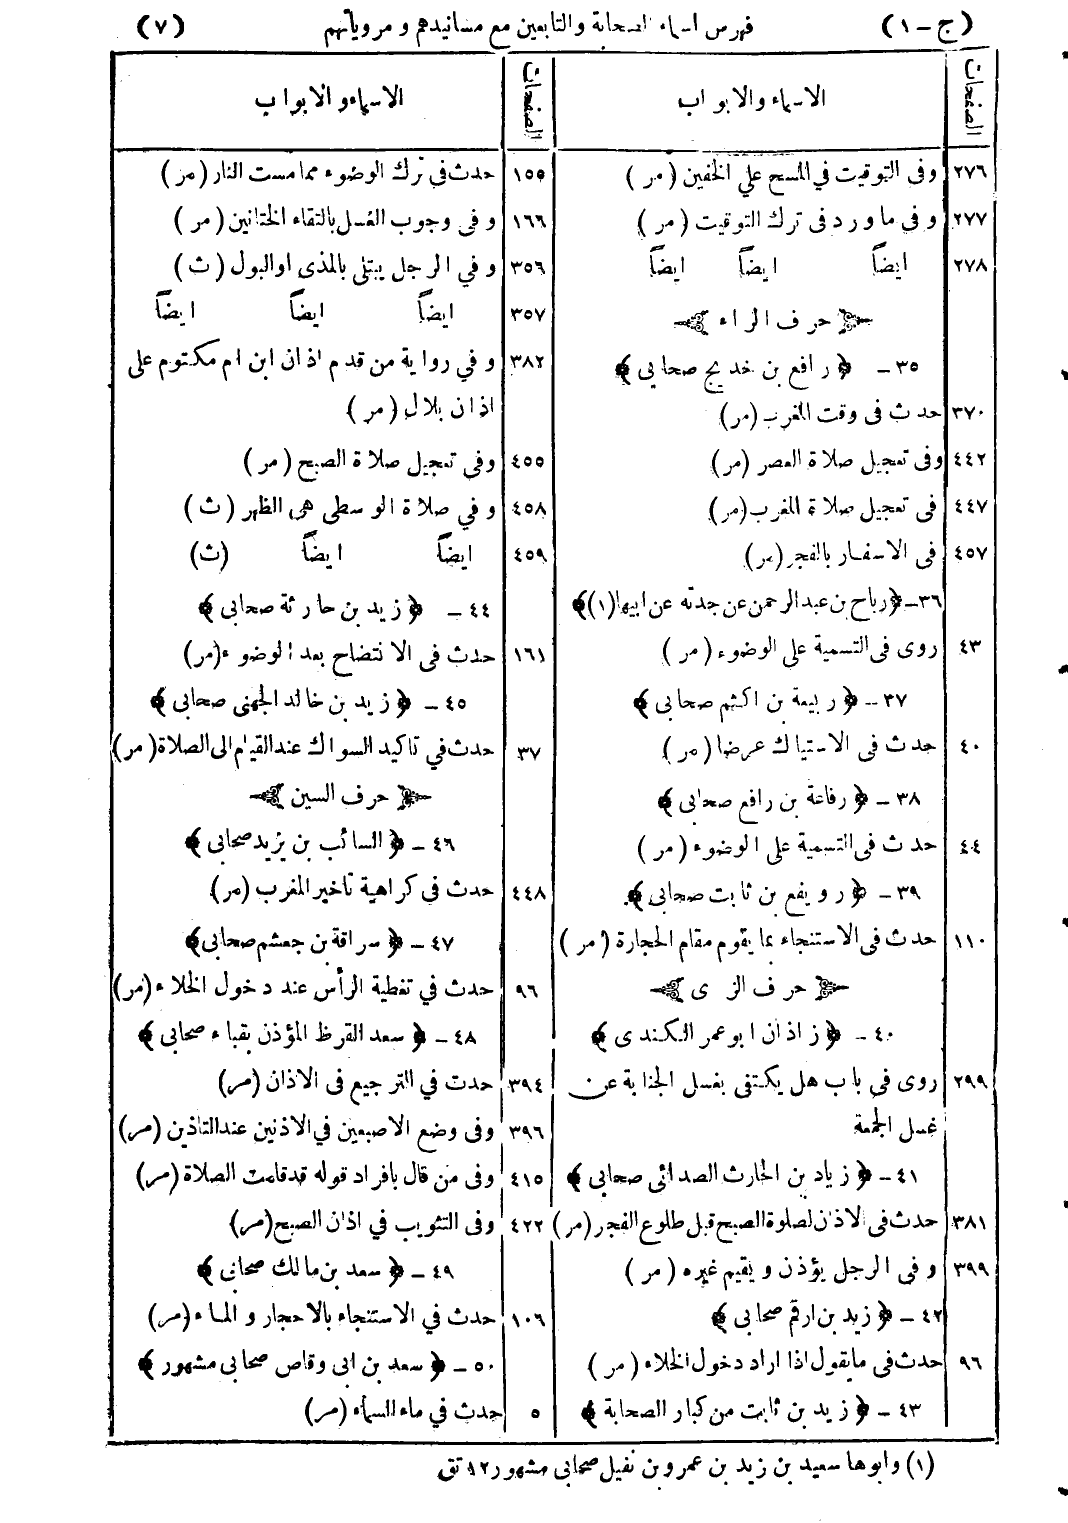 (ج - ١) فهرس اسماء الصحابة والتابعين مع مسانيدهم و مروياتهم (٧)
الصفحات الاسماء والابواب
٢٧٦ وفى التوقيت في المسح على الخفين (مر)
٢٧٧ و فى ما ورد فى ترك التوقيت (مر)
٢٧٨ ايضاً ايضاً ايضاً
حرف الراء
٣٥ - ﴿ رافع بن خديج صحابى ﴾
٣٧٠ حدث فى وقت المغرب (مر)
٤٤٢ وفى تعجيل صلاة العصر (مر)
٤٤٧ فى تعجيل صلاة المغرب (مر)
٤٥٧ فى الاسفار بالفجر (مر)
٣٦ - ﴿ رباح بن عبد الرحمن عن جدته عن ابيها (١) ﴾
٤٣ روى فى التسمية على الوضوء (مر)
٣٧ - ﴿ ربيعة بن اكثم صحابى ﴾
٤٠ حدث فى الاستياك عرضا (مر)
٣٨ - ﴿ رفاعة بن رافع صحابى ﴾
٤٤ حدث فى التسمية على الوضوء (مر)
٣٩ - ﴿ رويفع بن ثابت صحابى ﴾
١١٠ حدث فى الاستنجاء بما يقوم مقام الحجارة (مر)
حرف الزى
٤٠ - ﴿ زاذان ابو عمر الكندى ﴾
٢٩٩ روى فى باب هل يكتفى بغسل الجنابة عن
غسل الجمعة
٤١ - ﴿ زياد بن الحارث الصدائى صحابى ﴾
٣٨١ حدث فى الاذان لصلوة الصبح قبل طلوع الفجر (مر)
٣٩٩ و فى الرجل يؤذن و يقيم غيره (مر)
٤٢ - ﴿ زيد بن ارقم صحابى ﴾
٩٦ حدث فى مايقول اذا اراد دخول الخلاء (مر)
٤٣ - ﴿ زيد بن ثابت من كبار الصحابة ﴾
الصفحات الاسماء والابواب
١٥٥ حدث فى ترك الوضوء مما مست النار (مر)
١٦٦ و فى وجوب الغسل بالتقاء الختانين (مر)
٣٥٦ و في الرجل يبتلى بالمذى او البول (ث)
٣٥٧ ايضاً ايضاً ايضاً
٣٨٢ و في رواية من قدم اذان ابن ام مكتوم على
اذان بلال (مر)
٤٥٥ وفى تعجيل صلاة الصبح (مر)
٤٥٨ و في صلاة الوسطى هى الظهر (ث)
٤٥٩ ايضاً ايضاً (ث)
٤٤ - ﴿ زيد بن حارثة صحابى ﴾
١٦١ حدث فى الانتضاح بعد الوضوء (مر)
٤٥ - ﴿ زيد بن خالد الجهنى صحابى ﴾
٣٧ حدث في تاكيد السواك عند القيام الى الصلاة (مر)
حرف السين
٤٦ - ﴿ السائب بن يزيد صحابى ﴾
٤٤٨ حدث فى كراهية تأخير المغرب (مر)
٤٧ - ﴿ سراقة بن جعشم صحابى ﴾
٩٦ حدث في تغطية الرأس عند دخول الخلاء (مر)
٤٨ - ﴿ سعد القرظ المؤذن بقباء صحابى ﴾
٣٩٤ حدث في الترجيع فى الاذان (مر)
٣٩٦ وفى وضع الاصبعين في الاذنين عند التاذين (مر)
٤١٥ وفى من قال بافراد قوله قدقامت الصلاة (مر)
٤٢٢ وفى التثويب في اذان الصبح (مر)
٤٩ - ﴿ سعد بن مالك صحابى ﴾
١٠٦ حدث في الاستنجاء بالاحجار و الماء (مر)
٥٠ - ﴿ سعد بن ابى وقاص صحابى مشهور ﴾
٥ حدث في ماء السماء (مر)
(١) وابوها سعيد بن زيد بن عمرو بن نفيل صحابى مشهور ١٢ تق